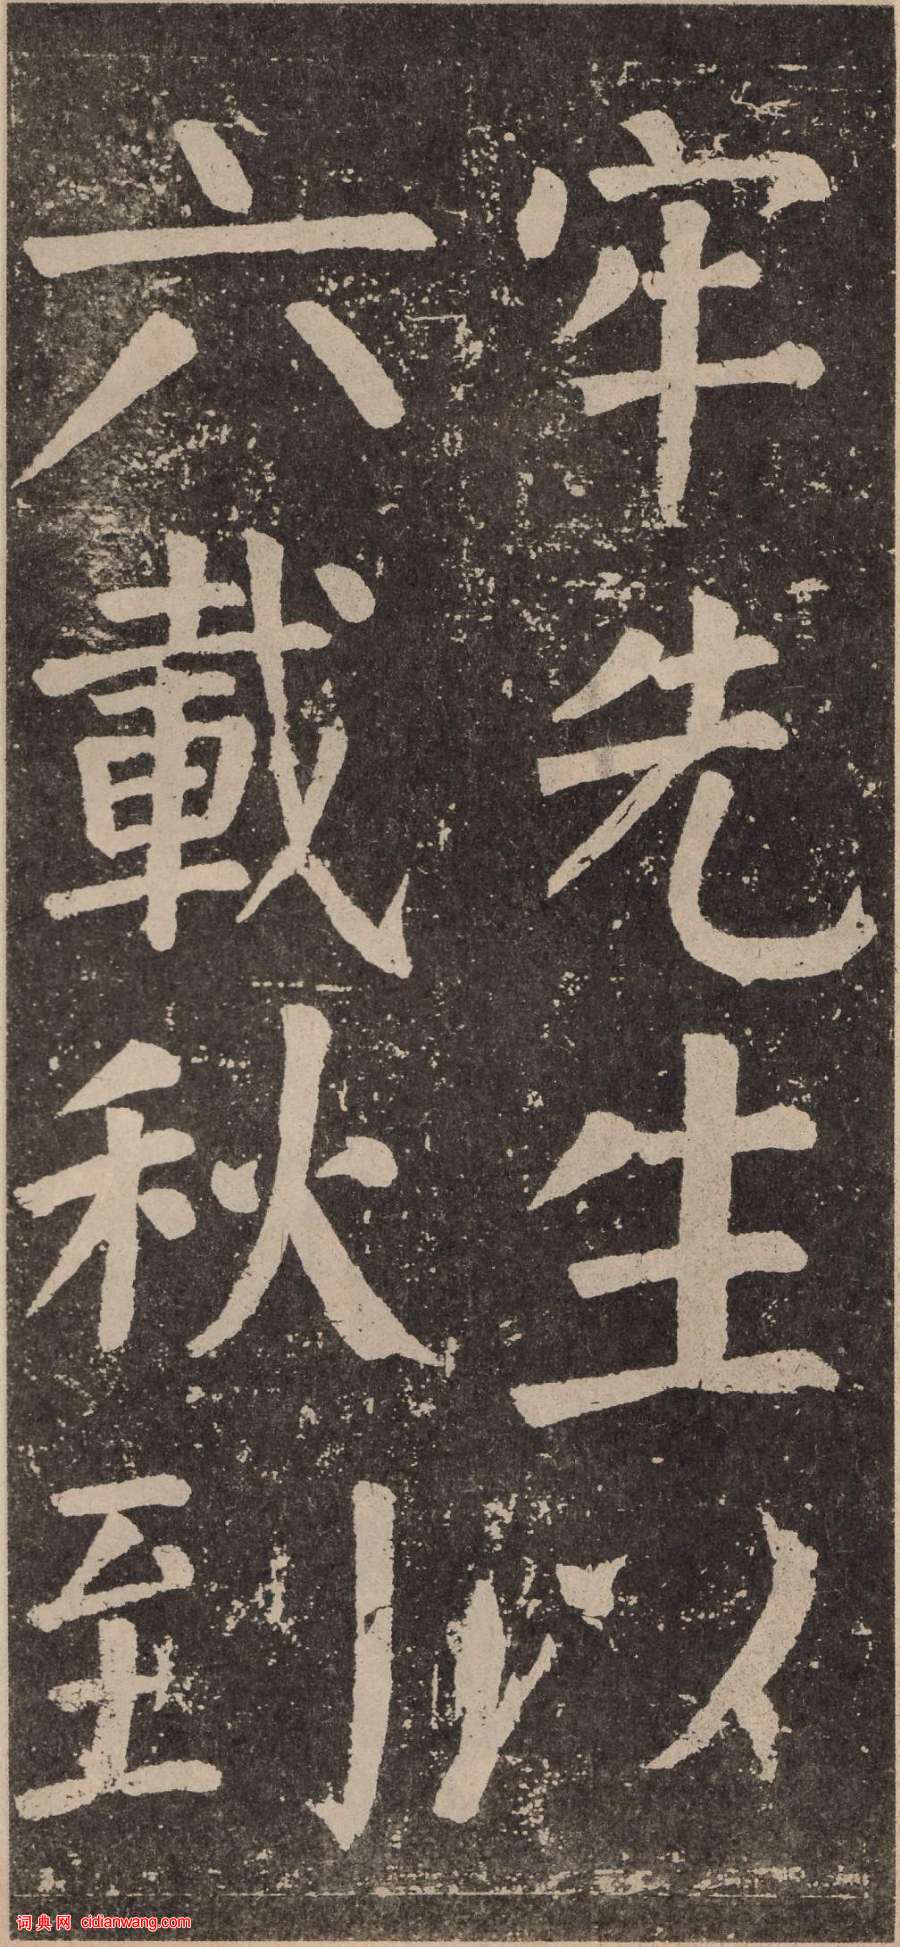 牢先生以
六載秋到
词典网 cidianwang.com